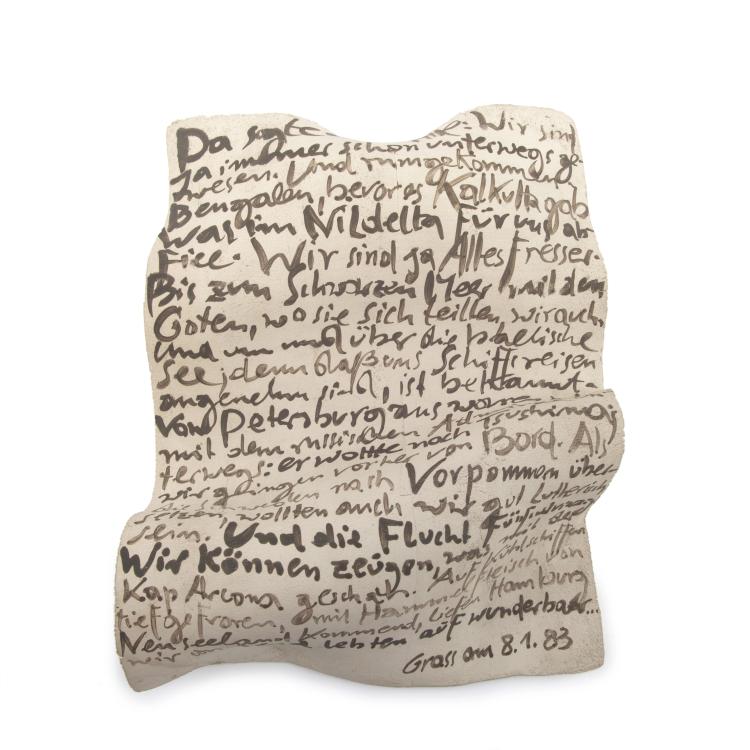 Da sagte : Wir sind
ja immer schon unterwegs ge-
wesen. Und rumgekommen
Bengalen, bevor es Kalkutta gab
was im Nildelta für uns ab-
fiel. Wir sind ja Allesfresser.
Bis zum Schwarzen Meer mit den
Goten, wo sie sich teilten, wir auch.
Und um und über die baltische
See, denn daß uns Schiffsreisen
angenehm sind, ist bekannt.
Von Petersburg aus waren
mit dem russischen Tsushima
terwegs: er wollte nach Bord. Als
wir gingen vorher von
die Schweden nach Vorpommern über-
setzen, wollten auch wir gut lutherisch
sein. Und die Flucht
Wir können zeugen, was mit der
Kap Arcona geschah. Auf Kühlschiffen
tiefgefroren, mit Hammelfleisch von
Neuseeland kommend, liefen Hamburg
wir lebten auf wunderbar...
Grass am 8.1.83